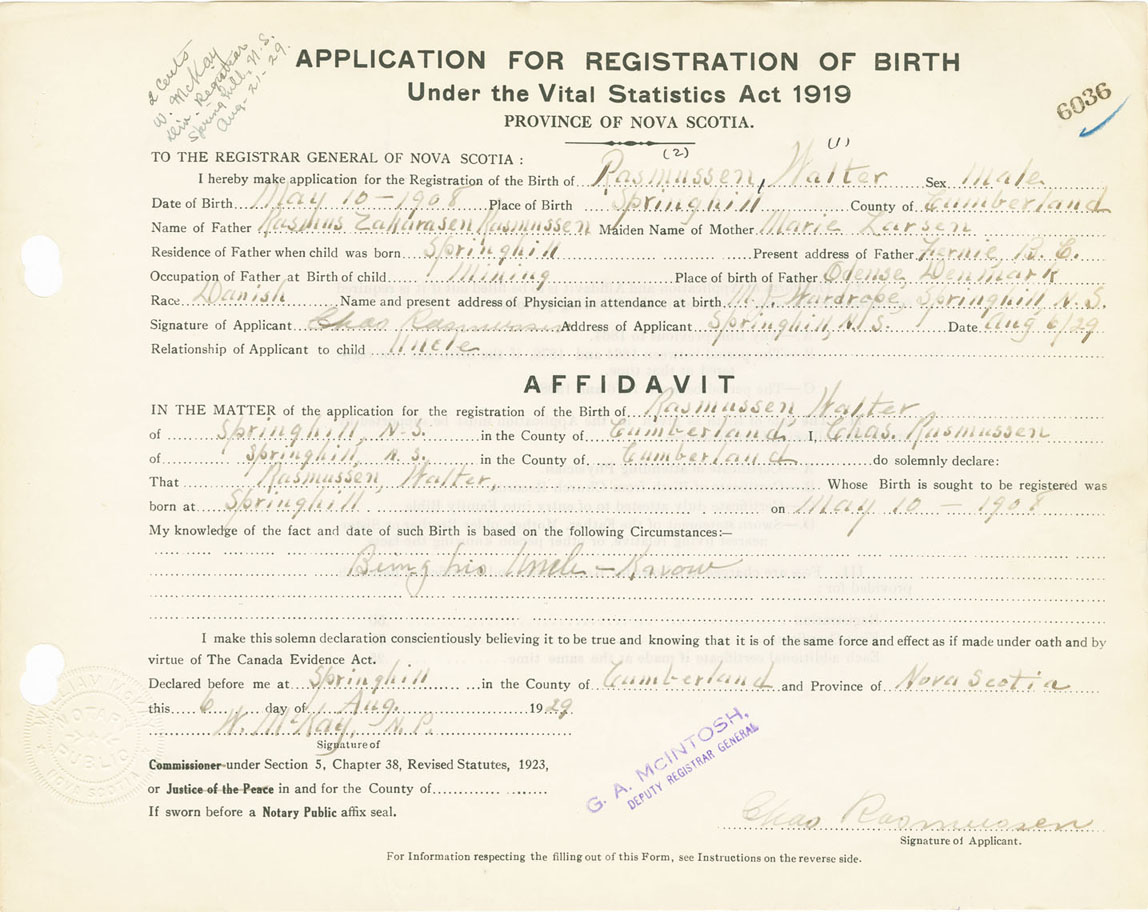 2 Cents
W. McKay
Div. Registrar
Springhill, N.S.
Aug-21-29.
APPLICATION FOR REGISTRATION OF BIRTH
Under the Vital Statistics Act 1919
PROVINCE OF NOVA SCOTIA.
6036
(2) (1)
TO THE REGISTRAR GENERAL OF NOVA SCOTIA :
I hereby make application for the Registration of the Birth of Rasmussen, Walter Sex Male
Date of Birth May 10-1908 Place of Birth Springhill County of Cumberland
Name of Father Rasmus Zakarasen Rasmussen Maiden Name of Mother Marie Larsen
Residence of Father when child was born Springhill Present address of Father Fernie B. C.
Occupation of Father at Birth of child Mining Place of birth of Father Odense, Denmark
Race Danish Name and present address of Physician in attendance at birth M. J. Wardrope, Springhill N.S.
Signature of Applicant Chas Rasmussen Address of Applicant Springhill, N.S. Date Aug 6/29
Relationship of Applicant to child Uncle
AFFIDAVIT
IN THE MATTER of the application for the registration of the Birth of Rasmussen Walter
of Springhill, N-S. in the County of Cumberland I, Chas. Rasmussen
of Springhill, N.S. in the County of Cumberland do solemnly declare:
That Rasmussen, Walter, Whose Birth is sought to be registered was
born at Springhill on May 10 - 1908
My knowledge of the fact and date of such Birth is based on the following Circumstances:—
Being his Uncle - Know
I make this solemn declaration conscientiously believing it to be true and knowing that it is of the same force and effect as if made under oath and by
virtue of The Canada Evidence Act.
Declared before me at Springhill in the County of Cumberland and Province of Nova Scotia
this 6 day of Aug. 1929
W. McKay, N.P.
Signature of
Commissioner under Section 5, Chapter 38, Revised Statutes, 1923,
or Justice of the Peace in and for the County of
If sworn before a Notary Public affix seal.
NOTARY PUBLIC
NOVA SCOTIA
G. A. MCINTOSH,
DEPUTY REGISTRAR GENERAL
Chas Rasmussen
Signature of Applicant.
For Information respecting the filling out of this Form, see Instructions on the reverse side.